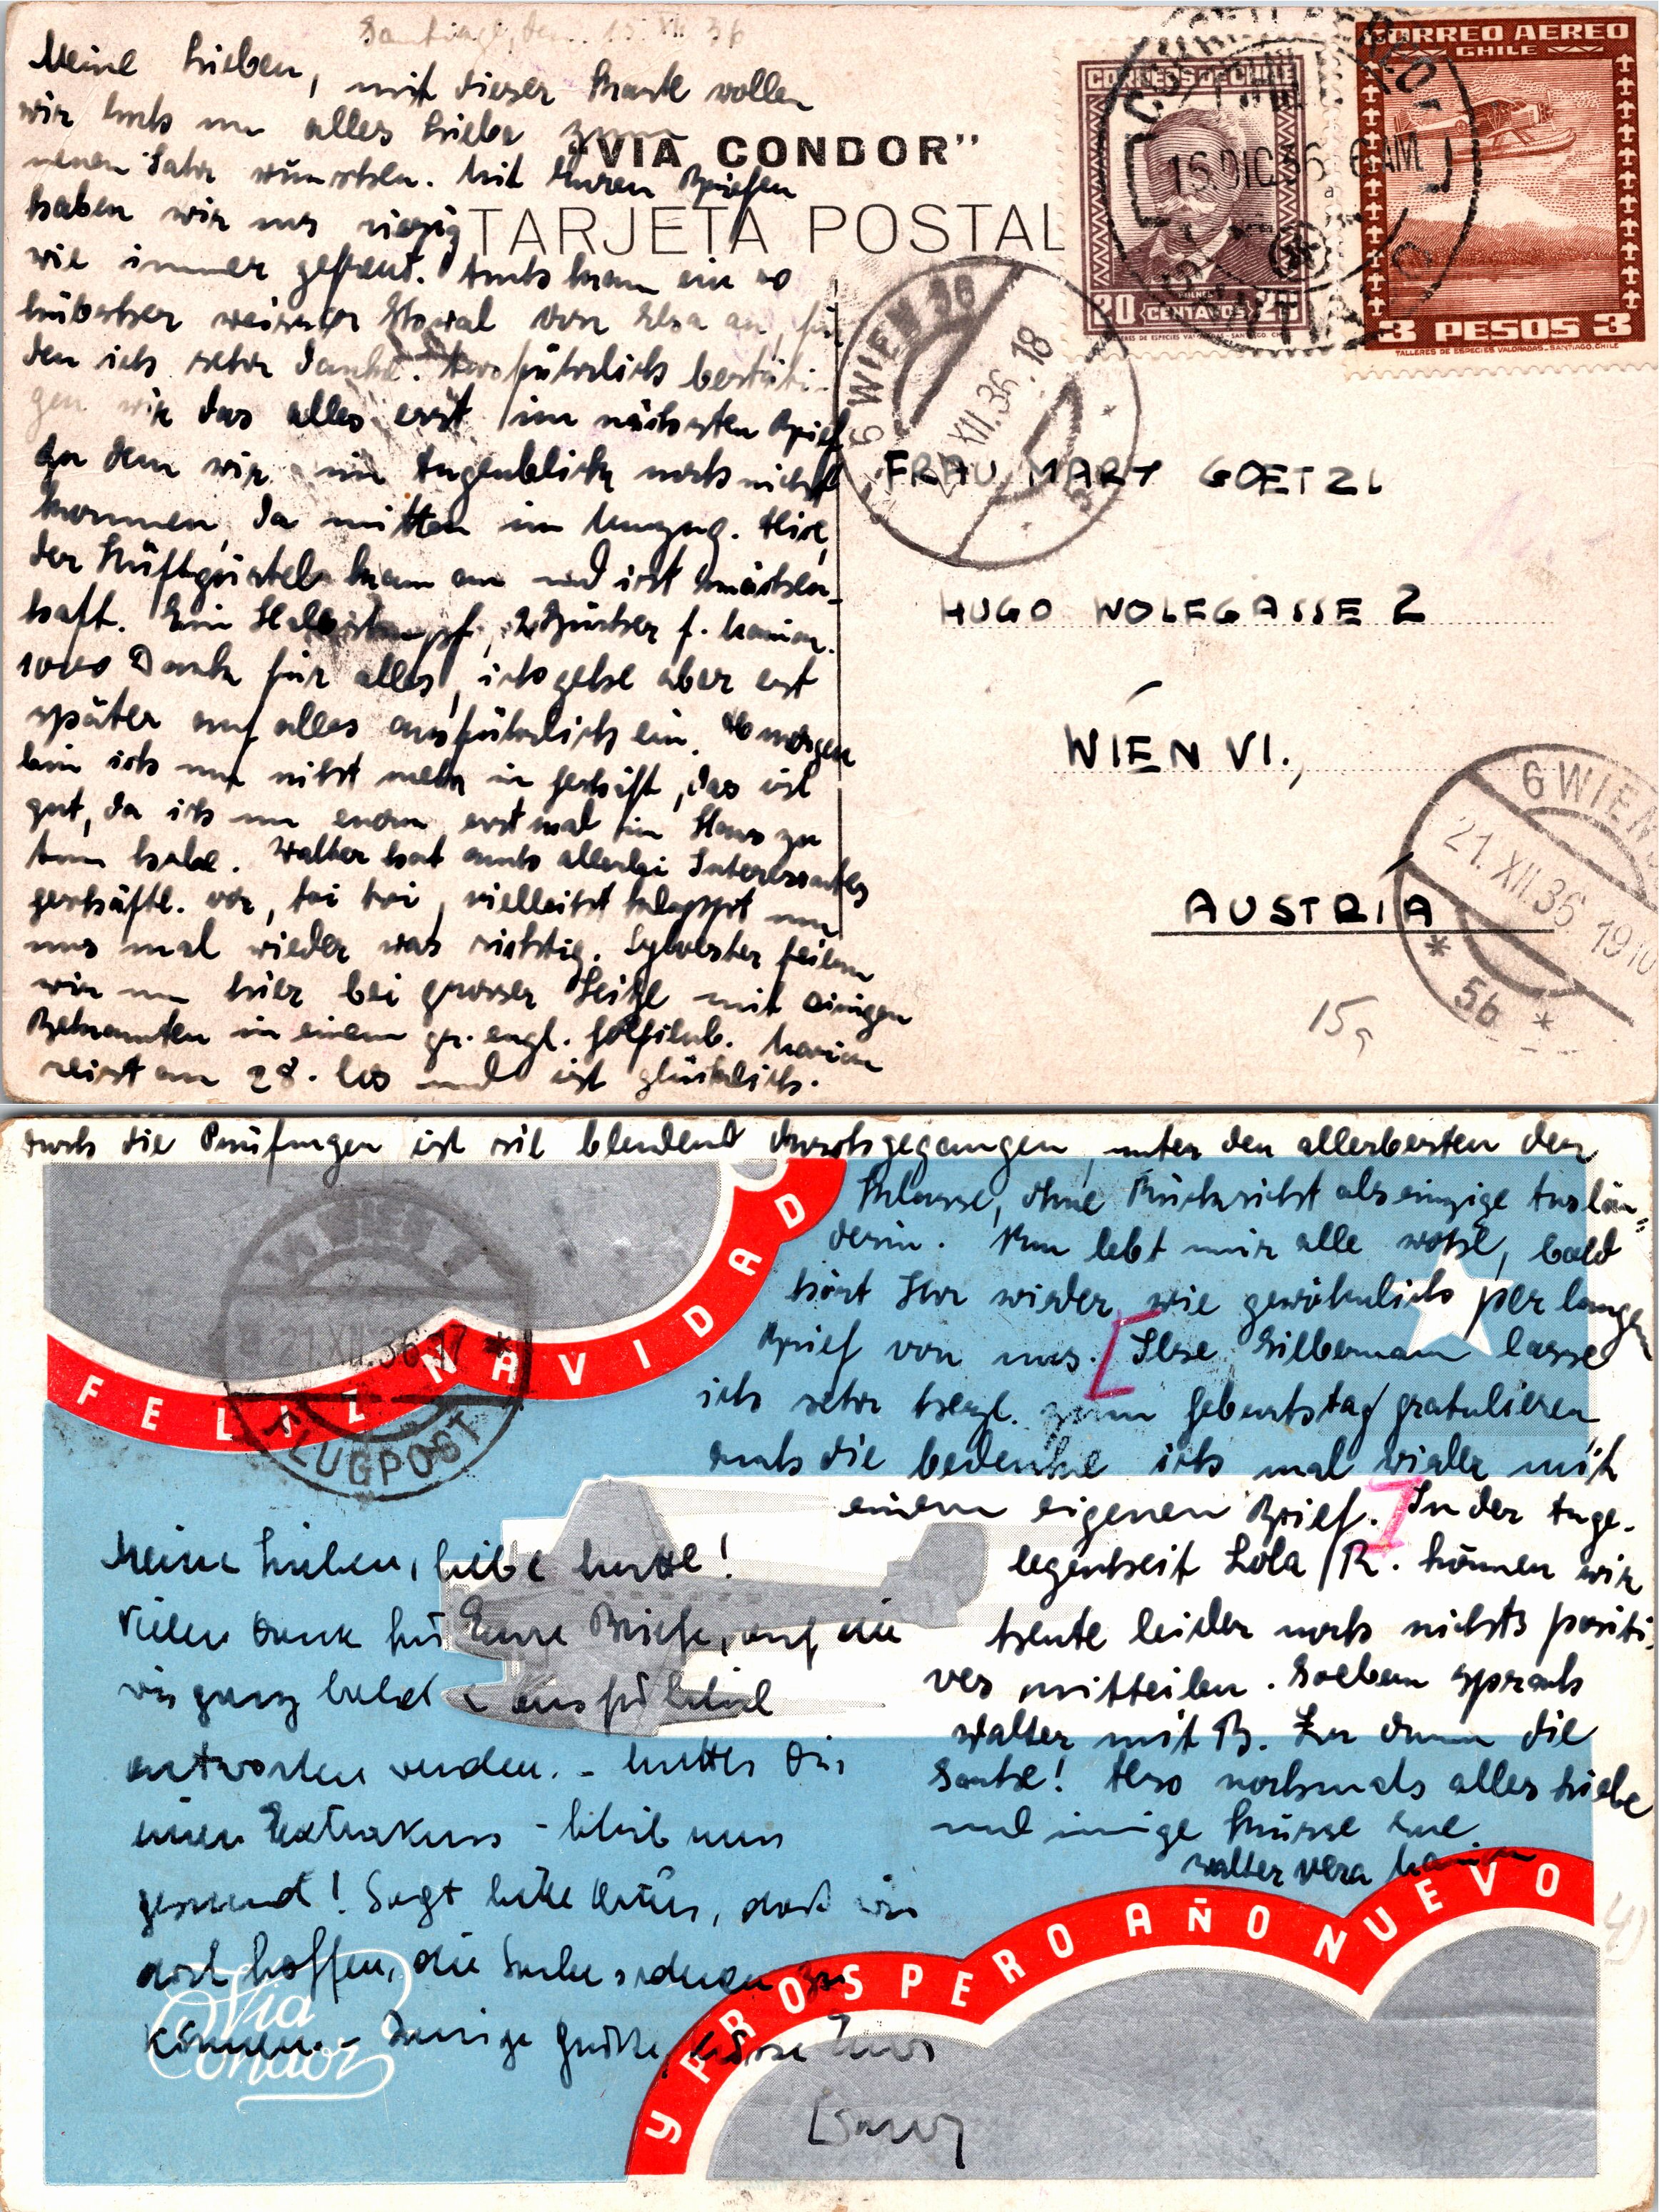 Santiago, den 15. XII 36
Meine Lieben, mit dieser Karte wollen
wir Euch nur alles Liebe zum
neuen Jahr wünschen. Mit Euren Briefen
haben wir uns riesig
wie immer gefreut. Auch kam ein so
hübscher weisser Shawl von Elsa an, für
den ich sehr danke. Ausführlich bestäti-
gen wir das alles erst im nächsten Brief
zu dem wir im Augenblick noch nicht
kommen, da mitten im Umzug. Also,
der Hüftgürtel kam an und ist märchen-
haft. Ein 2 Bücher f. Marion.
1000 Dank für alles, ich gehe aber erst
später auf alles ausführlich ein. Ab morgen
bin ich nun nicht mehr im Geschäft, das ist
gut, da ich nun enorm erst mal im Haus zu
tun habe. Walter hat auch allerlei Interessantes
geschäftl. vor, toi toi, vielleicht klappt nun
uns mal wieder was richtig. Sylvester feiern
wir nun hier bei grosser Hitze mit einigen
Bekannten in einem gr. engl. Golfclub. Marion
reist am 28. los und ist glücklich.
"VIA CONDOR"
TARJETA POSTAL
CORREOS DE CHILE
20 CENTAVOS 20
TALLERES DE ESPECIES VALORADAS-SANTIAGO, CHILE
CORREO AEREO
CHILE
3 PESOS 3
TALLERES DE ESPECIES VALORADAS-SANTIAGO, CHILE
CORREO AEREO
15.DIC 36 6 AM
SANTIAGO
6 WIEN 56
XII.36.18
FRAU MARY GOETZL
HUGO WOLFGASSE 2
WIEN VI.,
AUSTRIA
6 WIEN
21.XII.36 1910
* 5b *
15,
durch die Prüfungen ist sie blendend durchgegangen, unter den allerbesten der
Klasse, ohne Rücksicht als einzige Auslän-
derin. Nun lebt mir alle wohl, bald
hört Ihr wieder wie gewöhnlich per langen
Brief von uns. [Ilse Silbermann lasse
ich sehr herzl. zum Geburtstag gratulieren
auch die bedenke ich mal wieder mit
einem eigenen Brief.] In der Ange-
legenheit Lola R. können wir
heute leider noch nichts positi-
ves mitteilen. Soeben sprach
Walter mit B. die
Sache! Also nochmals alles Liebe
und innige Küsse Eure
Walter Vera Marion
FELIZ NAVIDAD
WIEN
21.XII.36 17 *
FLUGPOST
Meine Lieben, liebe Mutter!
Vielen Dank für Eure Briefe, auf die
wir ganz bald ausführlich
antworten werden. - Mutter Dir
einen Extrakuss - bleib nun
gesund! Sagt bitte, dass wir
doch hoffen, die Sache ordnen zu
können. - Innige Grüsse, Küsse Eurer
Via
Condor
Y PROSPERO AÑO NUEVO
4)